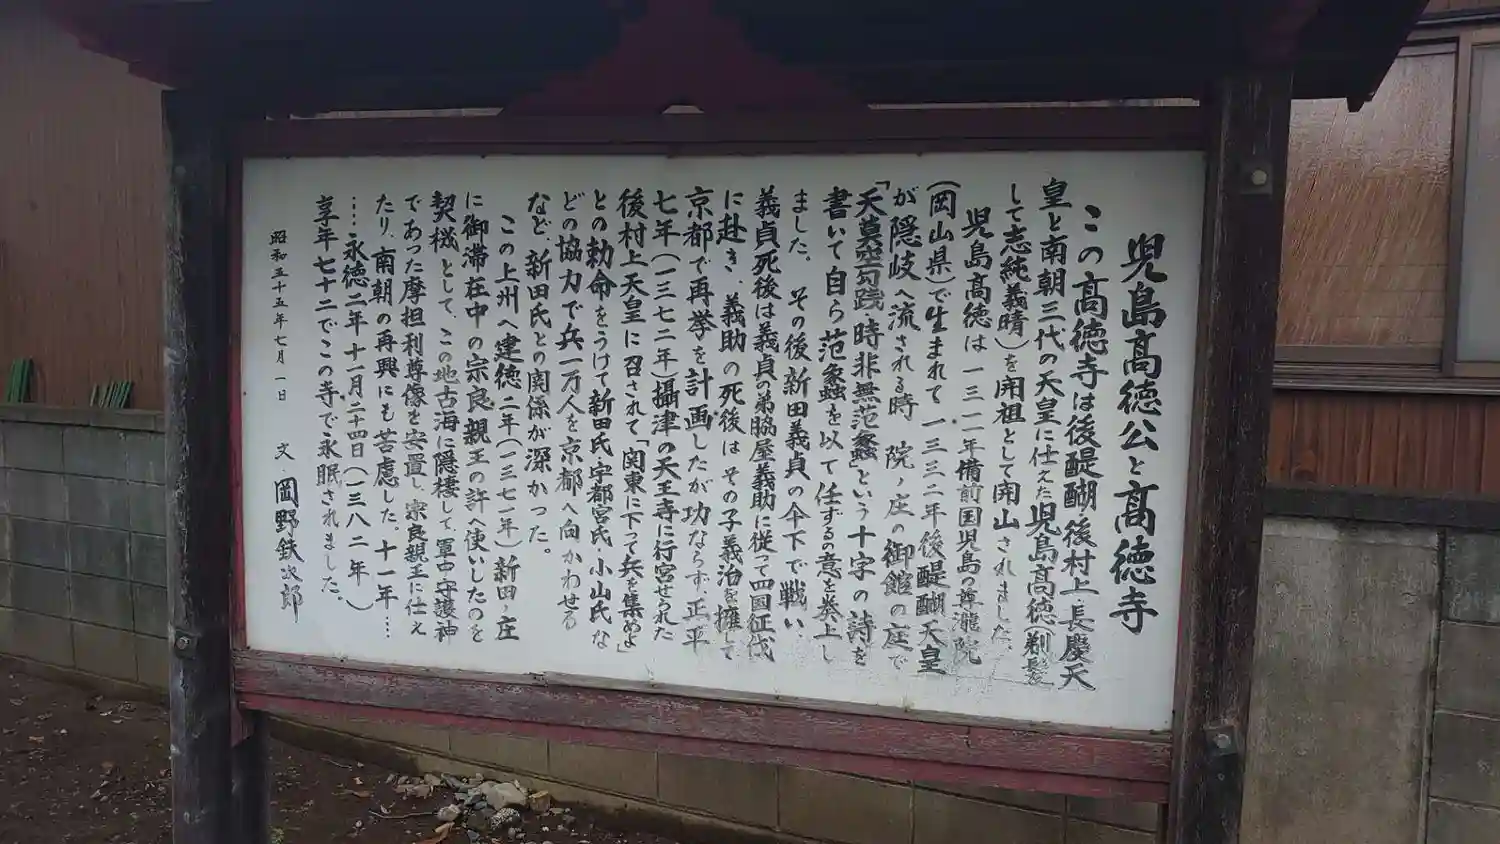 児島高徳公と高徳寺
この高徳寺は後醍醐、後村上、長慶天
皇と南朝三代の天皇に仕えた児島高徳(剃髪
して志純義晴)を開祖として開山されました。
児島高徳は一三一一年備前国児島の尊瀧院
(岡山県)で生まれて一三三二年後醍醐天皇
が隠岐へ流される時 院ノ庄の御館の庭で
「天莫空勾践 時非無范蠡」という十字の詩を
書いて自ら范蠡を以て任ずるの意を奏上し
ました。その後新田義貞の令下で戦い
義貞死後は義貞の弟脇屋義助に従て四国征伐
に赴き、義助の死後はその子義治を擁して
京都で再挙を計画したが功ならず、正平
七年(一三七二年)攝津の天王寺に行宮せられた
後村上天皇に召されて「関東に下って兵を集めよ」
との勅命をうけて新田氏、宇都宮氏、小山氏な
どの協力で兵一万人を京都へ向かわせる
など、新田氏との関係が深かった。
この上州へ建徳二年(一三七一年)新田ノ庄
に御滞在中の宗良親王の許へ使いしたのを
契機として、この地古海に隠棲して、軍古守護神
であった摩担利尊像を安置し、宗良親王に仕え
たり、南朝の再興にも苦慮した。十一年……
…永徳二年十一月二十四日(一三八二年)
享年七十二でこの寺で永眠されました。
昭和五十五年七月一日 文 岡野鉄次郎